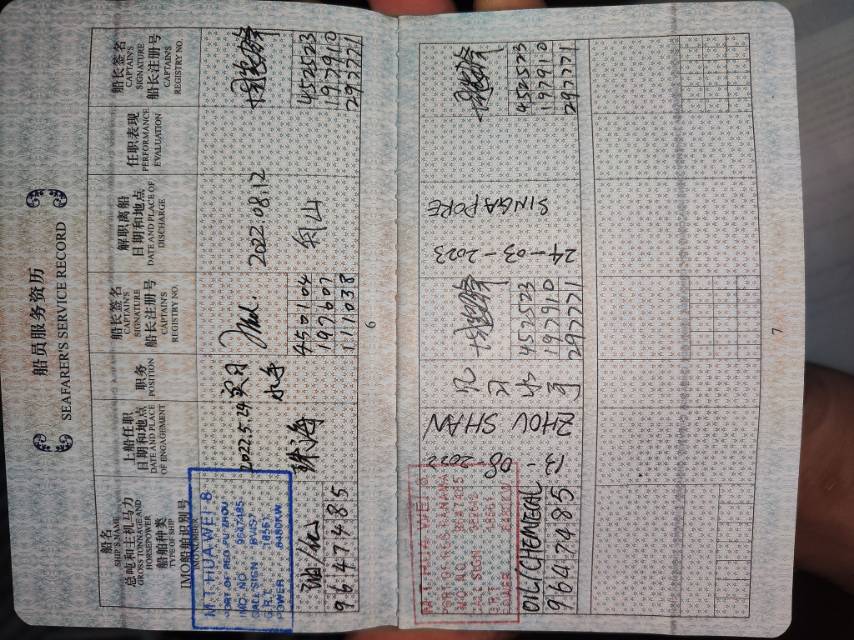 船员服务资历
SEAFARER'S SERVICE RECORD
船名
SHIP'S NAME
总吨和主机马力
GROSS TONNAGE AND
HORSEPOWER
船舶种类
TYPE OF SHIP
IMO船舶识别号
IMO NUMBER
上船任职
日期和地点
DATE AND PLACE
OF ENGAGEMENT
职务
POSITION
船长签名
CAPTAIN'S
SIGNATURE
船长注册号
CAPTAIN'S
REGISTRY NO.
解职离船
日期和地点
DATE AND PLACE OF
DISCHARGE
任职表现
PERFORMANCE
EVALUATION
船长签名
CAPTAIN'S
SIGNATURE
船长注册号
CAPTAIN'S
REGISTRY NO.
M.T. HUA WEI 8
PORT OF REG FUZHOU
IMO. NO 9647485
CALL SIGN
G.R.T.
POWER 4480KW
油/化
9647485
2022.5.24
珠海
实习
水手
450104
197607
111038
2022.08.12
舟山
452523
197910
297771
6
M.T. HUA WEI 8
PORT OF REG PANAMA
IMO NO 9647485
CALL SIGN
G.R.T.
POWER 4480KW
OIL/CHEMICAL
9647485
13-08-2022
ZHOU SHAN
见
习
水
手
452523
197910
297771
24-03-2023
SINGAPORE
452523
197910
297771
7